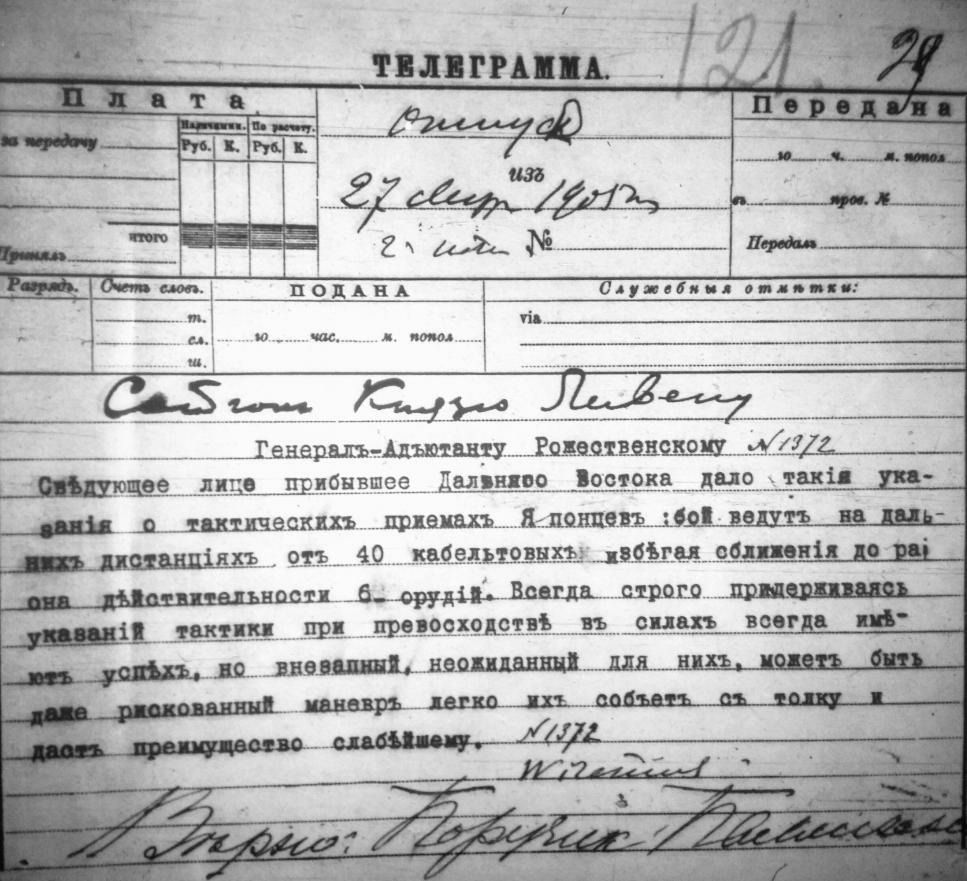 121. 29
ТЕЛЕГРАММА.
Плата
за передачу
Наличными. По расчету.
Руб. К. Руб. К.
итого
Принялъ
отпуск
изъ
27 1905 г.
№
Передана
го ч. м. попол
въ пров. №
Передалъ
Разрядъ.
Счетъ словъ.
т.
сл.
ш.
ПОДАНА
го час. м. попол
Служебныя отмѣтки:
via
Князю Ливену
Генералъ-Адъютанту Рожественскому №1372
Свѣдующее лице прибывшее Дальняго Востока дало такія ука-
занія о тактическихъ приемахъ Японцевъ :бой ведутъ на даль-
нихъ дистанціяхъ отъ 40 кабельтовыхъ избѣгая сближенія до раі
она дѣйствительности 6. орудій. Всегда строго придерживаясь
указаній тактики при превосходствѣ въ силахъ всегда имѣ-
ютъ успѣхъ, но внезапный, неожиданный для нихъ, можетъ быть
даже рискованный маневръ легко ихъ собъетъ съ толку и
дастъ преимущество слабѣйшему. №1372
Wirenius
Вѣрно: